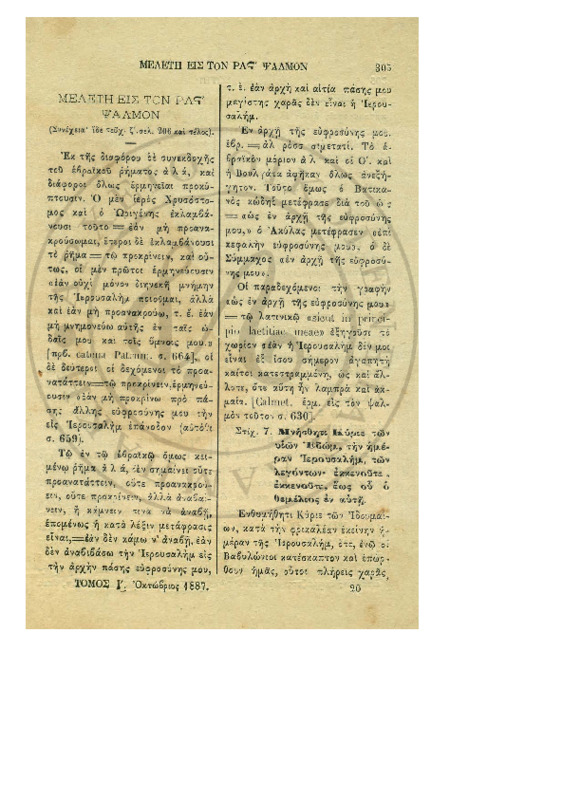 ΜΕΛΕΤΗ ΕΙΣ ΤΟΝ ΡΛϚʹ ΨΑΛΜΟΝ 305
ΜΕΛΕΤΗ ΕΙΣ ΤΟΝ ΡΛϚʹ
ΨΑΛΜΟΝ
(Συνέχεια· ἴδε τεῦχ. ζʹ. σελ. 206 καὶ τέλος).
Ἐκ τῆς διαφόρου δὲ συνεκδοχῆς
τοῦ ἑβραϊκοῦ ῥήματος ἀ λ ά, καὶ
διάφοροι ὅλως ἑρμηνεῖαι προκύ-
πτουσιν. Ὁ μὲν ἱερὸς Χρυσόστο-
μος καὶ ὁ Ὠριγένης ἐκλαμβά-
νουσι τοῦτο = ἐὰν μὴ προανα-
κρούσωμαι, ἕτεροι δὲ ἐκλαμβάνουσι
τὸ ῥῆμα = τῷ προκρίνειν, καὶ οὕ-
τως, οἱ μὲν πρῶτοι ἑρμηνεύουσιν
«ἐὰν οὐχὶ μόνον διηνεκῆ μνήμην
τῆς Ἱερουσαλὴμ ποιοῦμαι, ἀλλὰ
καὶ ἐὰν μὴ προανακρούω, τ. ἔ. ἐὰν
μὴ μνημονεύω αὐτῆς ἐν ταῖς ᾠ-
δαῖς μου καὶ τοῖς ὕμνοις μου.»
[πρβ. catena Patrum. σ. 664]. οἱ
δὲ δεύτεροι οἱ δεχόμενοι τὸ προα-
νατάττειν=τῷ προκρίνειν, ἑρμηνεύ-
ουσιν «ἐὰν μὴ προκρίνω πρὸ πά-
σης ἄλλης εὐφροσύνης μου τὴν
εἰς Ἱερουσαλὴμ ἐπάνοδον (αὐτόθι
σ. 659).
Τῷ ἐν τῷ ἑβραϊκῷ ὅμως κει-
μένῳ ῥῆμα ἀ λ ά, δὲν σημαίνει οὔτε
προανατάττειν, οὔτε προανακρού-
ειν, οὔτε προκρίνειν, ἀλλὰ ἀναβαί-
νειν, ἢ κάμνειν τινα νὰ ἀναβῇ,
ἑπομένως ἡ κατὰ λέξιν μετάφρασις
εἶναι,=ἐὰν δὲν κάμω ν' ἀναβῇ, ἐὰν
δὲν ἀναβιβάσω τὴν Ἱερουσαλὴμ εἰς
τὴν ἀρχὴν πάσης εὐφροσύνης μου,
τ. ἔ. ἐὰν ἀρχὴ καὶ αἰτία πάσης μου
μεγίστης χαρᾶς δὲν εἶναι ἡ Ἱερου-
σαλήμ.
Ἐν ἀρχῇ τῆς εὐφροσύνης μου.
ἑβρ. = ἀλ ρὸσς σιμετατί. Τὸ ἑ-
βραϊκὸν μόριον ἀ λ καὶ οἱ Οʹ. καὶ
ἡ Βουλγάτα ἀφῆκαν ὅλως ἀνεξή-
γητον. Τοῦτο ὅμως ὁ Βατικα-
νὸς κῶδηξ μετέφρασε διὰ τοῦ ὡ ς
= «ὡς ἐν ἀρχῇ τῆς εὐφροσύνης
μου,» ὁ Ἀκύλας μετέφρασεν «ἐπὶ
κεφαλὴν εὐφροσύνης μου», ὁ δὲ
Σύμμαχος «ἐν ἀρχῇ τῆς εὐφροσύ-
νης μου».
Οἱ παραδεχόμενοι τὴν γραφὴν
«ὡς ἐν ἀρχῇ τῆς εὐφροσύνης μου»
= τῷ λατινικῷ «sicut in princi-
pio laetitiae meae» ἐξηγοῦσι τὸ
χωρίον «ἐὰν ἡ Ἱερουσαλὴμ δέν μοι
εἶναι ἐξ ἴσου σήμερον ἀγαπητὴ
καίτοι κατεστραμμένη, ὡς καὶ ἄλ-
λοτε, ὅτε αὕτη ἦν λαμπρὰ καὶ ἀκ-
μαία. [Calmet. ἑρμ. εἰς τὸν ψαλ-
μὸν τοῦτον σ. 630].
Στίχ. 7. Μνήσθητι Κύριε τῶν
υἱῶν Ἐδώμ, τὴν ἡμέ-
ραν Ἱερουσαλήμ, τῶν
λεγόντων· ἐκκενοῦτε,
ἐκκενοῦτε, ἕως οὗ ὁ
θεμέλιος ἐν αὐτῇ.
Ἐνθυμήθητι Κύριε τῶν Ἰδουμαί-
ων, κατὰ τὴν φρικαλέαν ἐκείνην ἡ-
μέραν τῆς Ἱερουσαλήμ, ὅτε, ἐνῷ οἱ
Βαβυλώνιοι κατέσκαπτον καὶ ἐπόρ-
θουν ἡμᾶς, οὗτοι πλήρεις χαρᾶς,
ΤΟΜΟΣ Γʹ. Ὀκτώβριος 1887. 20